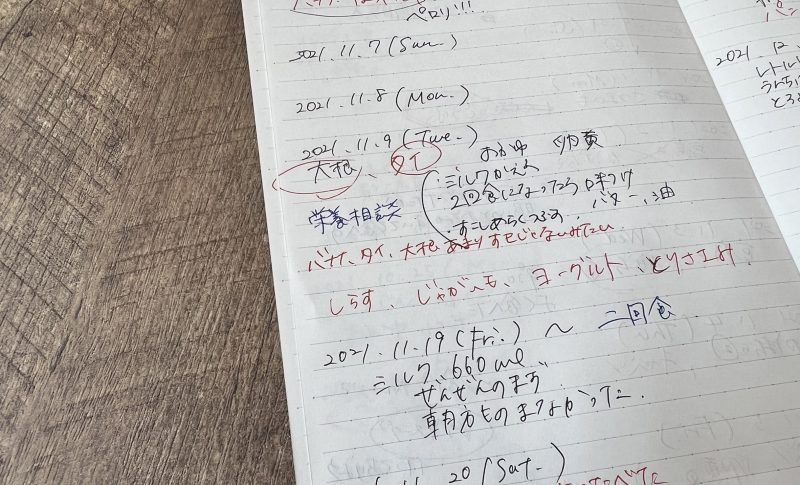 ペロリ!!!
2021.11.7 (Sun.)
2021.11.8 (Mon.)
2021.11.9 (Tue.)
大根、タイ
おかゆ 卵黄
栄養相談
・ミルクかえん
・2回食になったら味つけ
バター、油
・すこしあらくつぶす
バナナ、タイ、大根 あまりすきじゃないみたい
しらす、じゃがいも、ヨーグルト、とりささみ
2021.11.19 (Fri.) 〜 二回食
ミルク 660ml
ぜんぜんのまず
朝方ものまなかった
20 (Sat.)
2021.12
レトルト